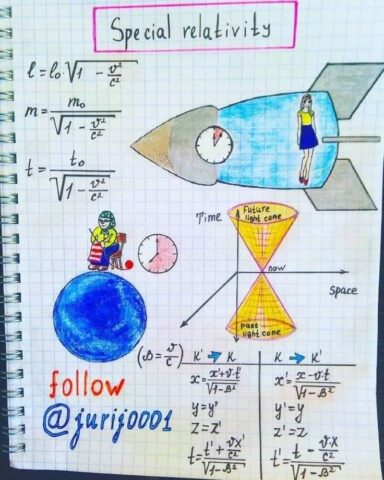 Special relativity
l = l₀ √(1 - v²/c²)
m = m₀ / √(1 - v²/c²)
t = t₀ / √(1 - v²/c²)
Time
Future
light cone
now
Space
Past
light cone
(β = v/c)
K' → K
K → K'
x = (x' + v·t) / √(1 - β²)
x' = (x - v·t) / √(1 - β²)
y = y'
y' = y
z = z'
z' = z
t = (t' + vx/c²) / √(1 - β²)
t' = (t - vx/c²) / √(1 - β²)
follow
@jurij0001